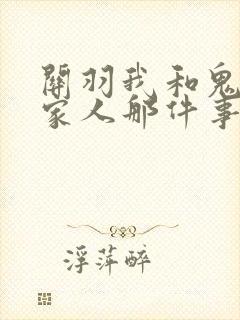 關羽我和鬼
家人那件事
浮萍醉